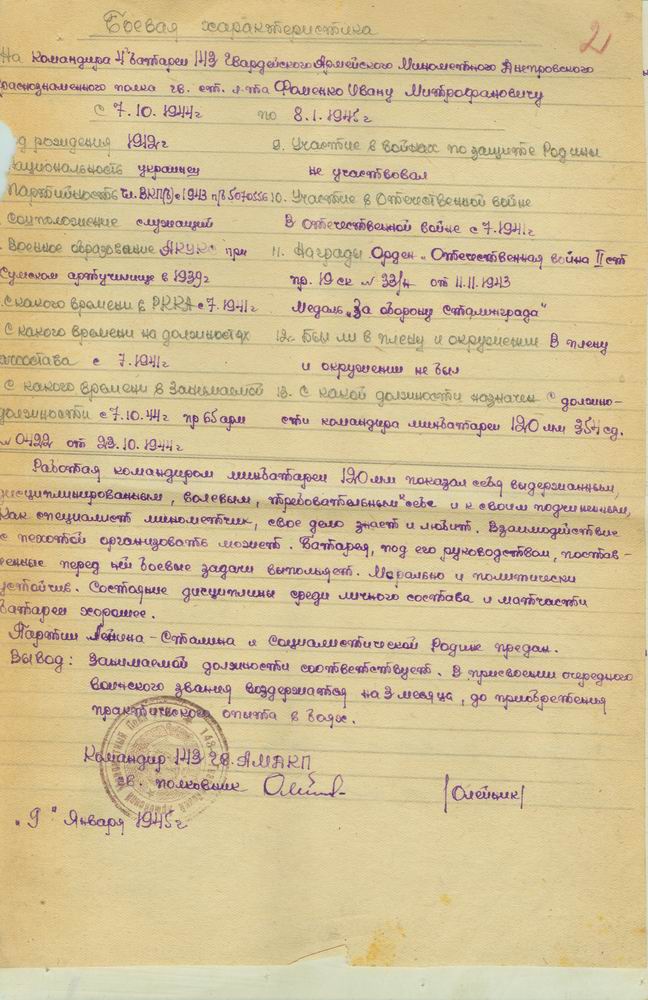 2
Боевая характеристика
На командира 4 батареи 143 Гвардейского Армейского Минометного Днепровского
Краснознаменного полка гв. ст. л-та Фоменко Ивану Митрофановичу
с 7.10.1944г по 8.1.1945г
од рождения 1912г
ациональность украинец
Партийность чл. ВКП(б) с 1943 п/б 5070556
Соцположение служащий
Военное образование АКУКС при
Сумском артучилище в 1939г
С какого времени в РККА с 7.1941г
С какого времени на должностях
начсостава с 7.1941г
С какого времени в занимаемой
должности с 7.10.44г пр 65 арм
№ 0422 от 23.10.1944г
9. Участие в войнах по защите Родины
не участвовал
10. Участие в Отечественной войне
В Отечественной войне с 7.1941г
11. Награды Орден „Отечественная война II ст
пр. 19 ск № 33/н от 11.11.1943
Медаль „За оборону Сталинграда"
12. Был ли в плену и окружении В плену
и окружении не был
13. С какой должности назначен с должно-
сти командира минбатареи 120 мм 354 сд.
Работая командиром минбатареи 120 мм показал себя выдержанным,
дисциплинированным, волевым, требовательным к себе и к своим подчиненным,
Как специалист минометчик, свое дело знает и любит. Взаимодействие
с пехотой организовать может. Батарея, под его руководством, постав-
ленные перед ней боевые задачи выполняет. Морально и политически
устойчив. Состояние дисциплины среди личного состава и матчасти
батареи хорошее.
Партии Ленина - Сталина и Социалистической Родине предан.
Вывод: Занимаемой должности соответствует. В присвоении очередного
воинского звания воздержатся на 3 месяца, до приобретения
практического опыта в боях.
Командир 143 гв. АМАКП
гв. полковник
/Олейник/
„9" Января 1945г